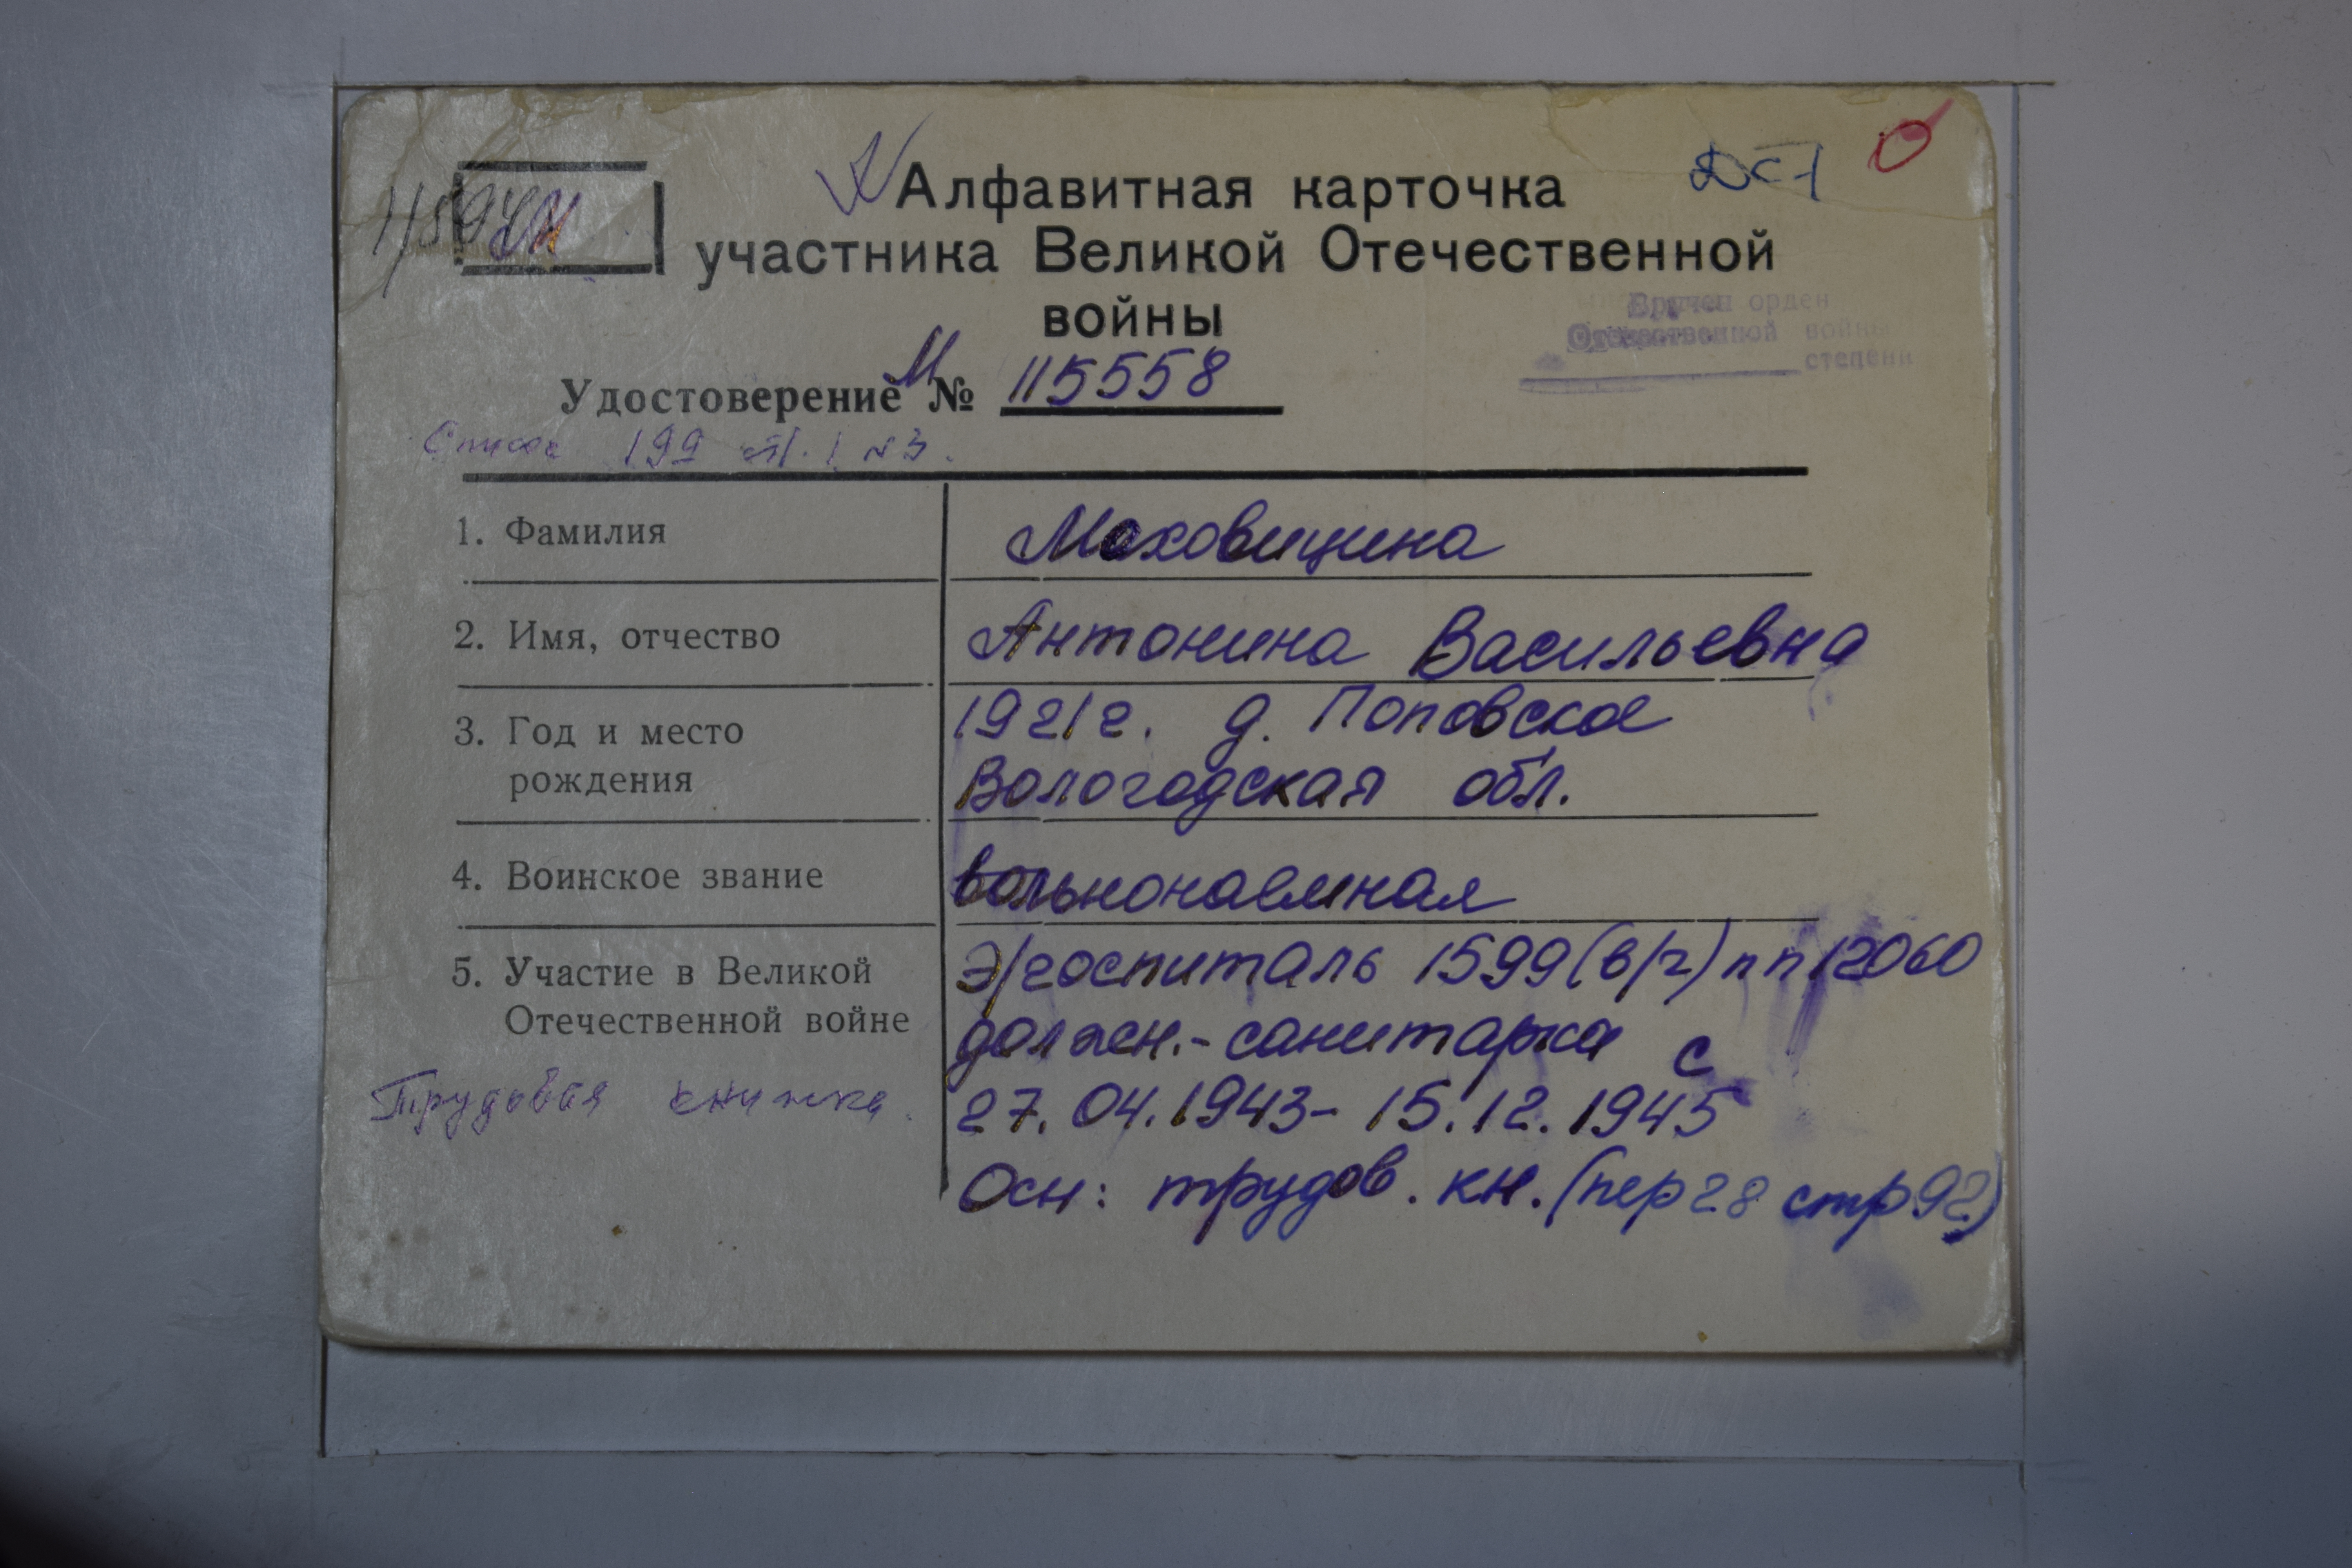 Алфавитная карточка
участника Великой Отечественной
войны
Вручен орден
Отечественной войны
степени
Удостоверение М № 115558
Список 199
1. Фамилия Моховицина
2. Имя, отчество Антонина Васильевна
3. Год и место 1921г. д. Поповское
рождения Вологодская обл.
4. Воинское звание вольнонаемная
5. Участие в Великой Э/госпиталь 1599 (в/г) пп 12060
Отечественной войне должн.- санитарка с
Трудовая книжка. 27.04.1943- 15.12.1945
Осн: трудов. кн. (пер 28 стр 92)